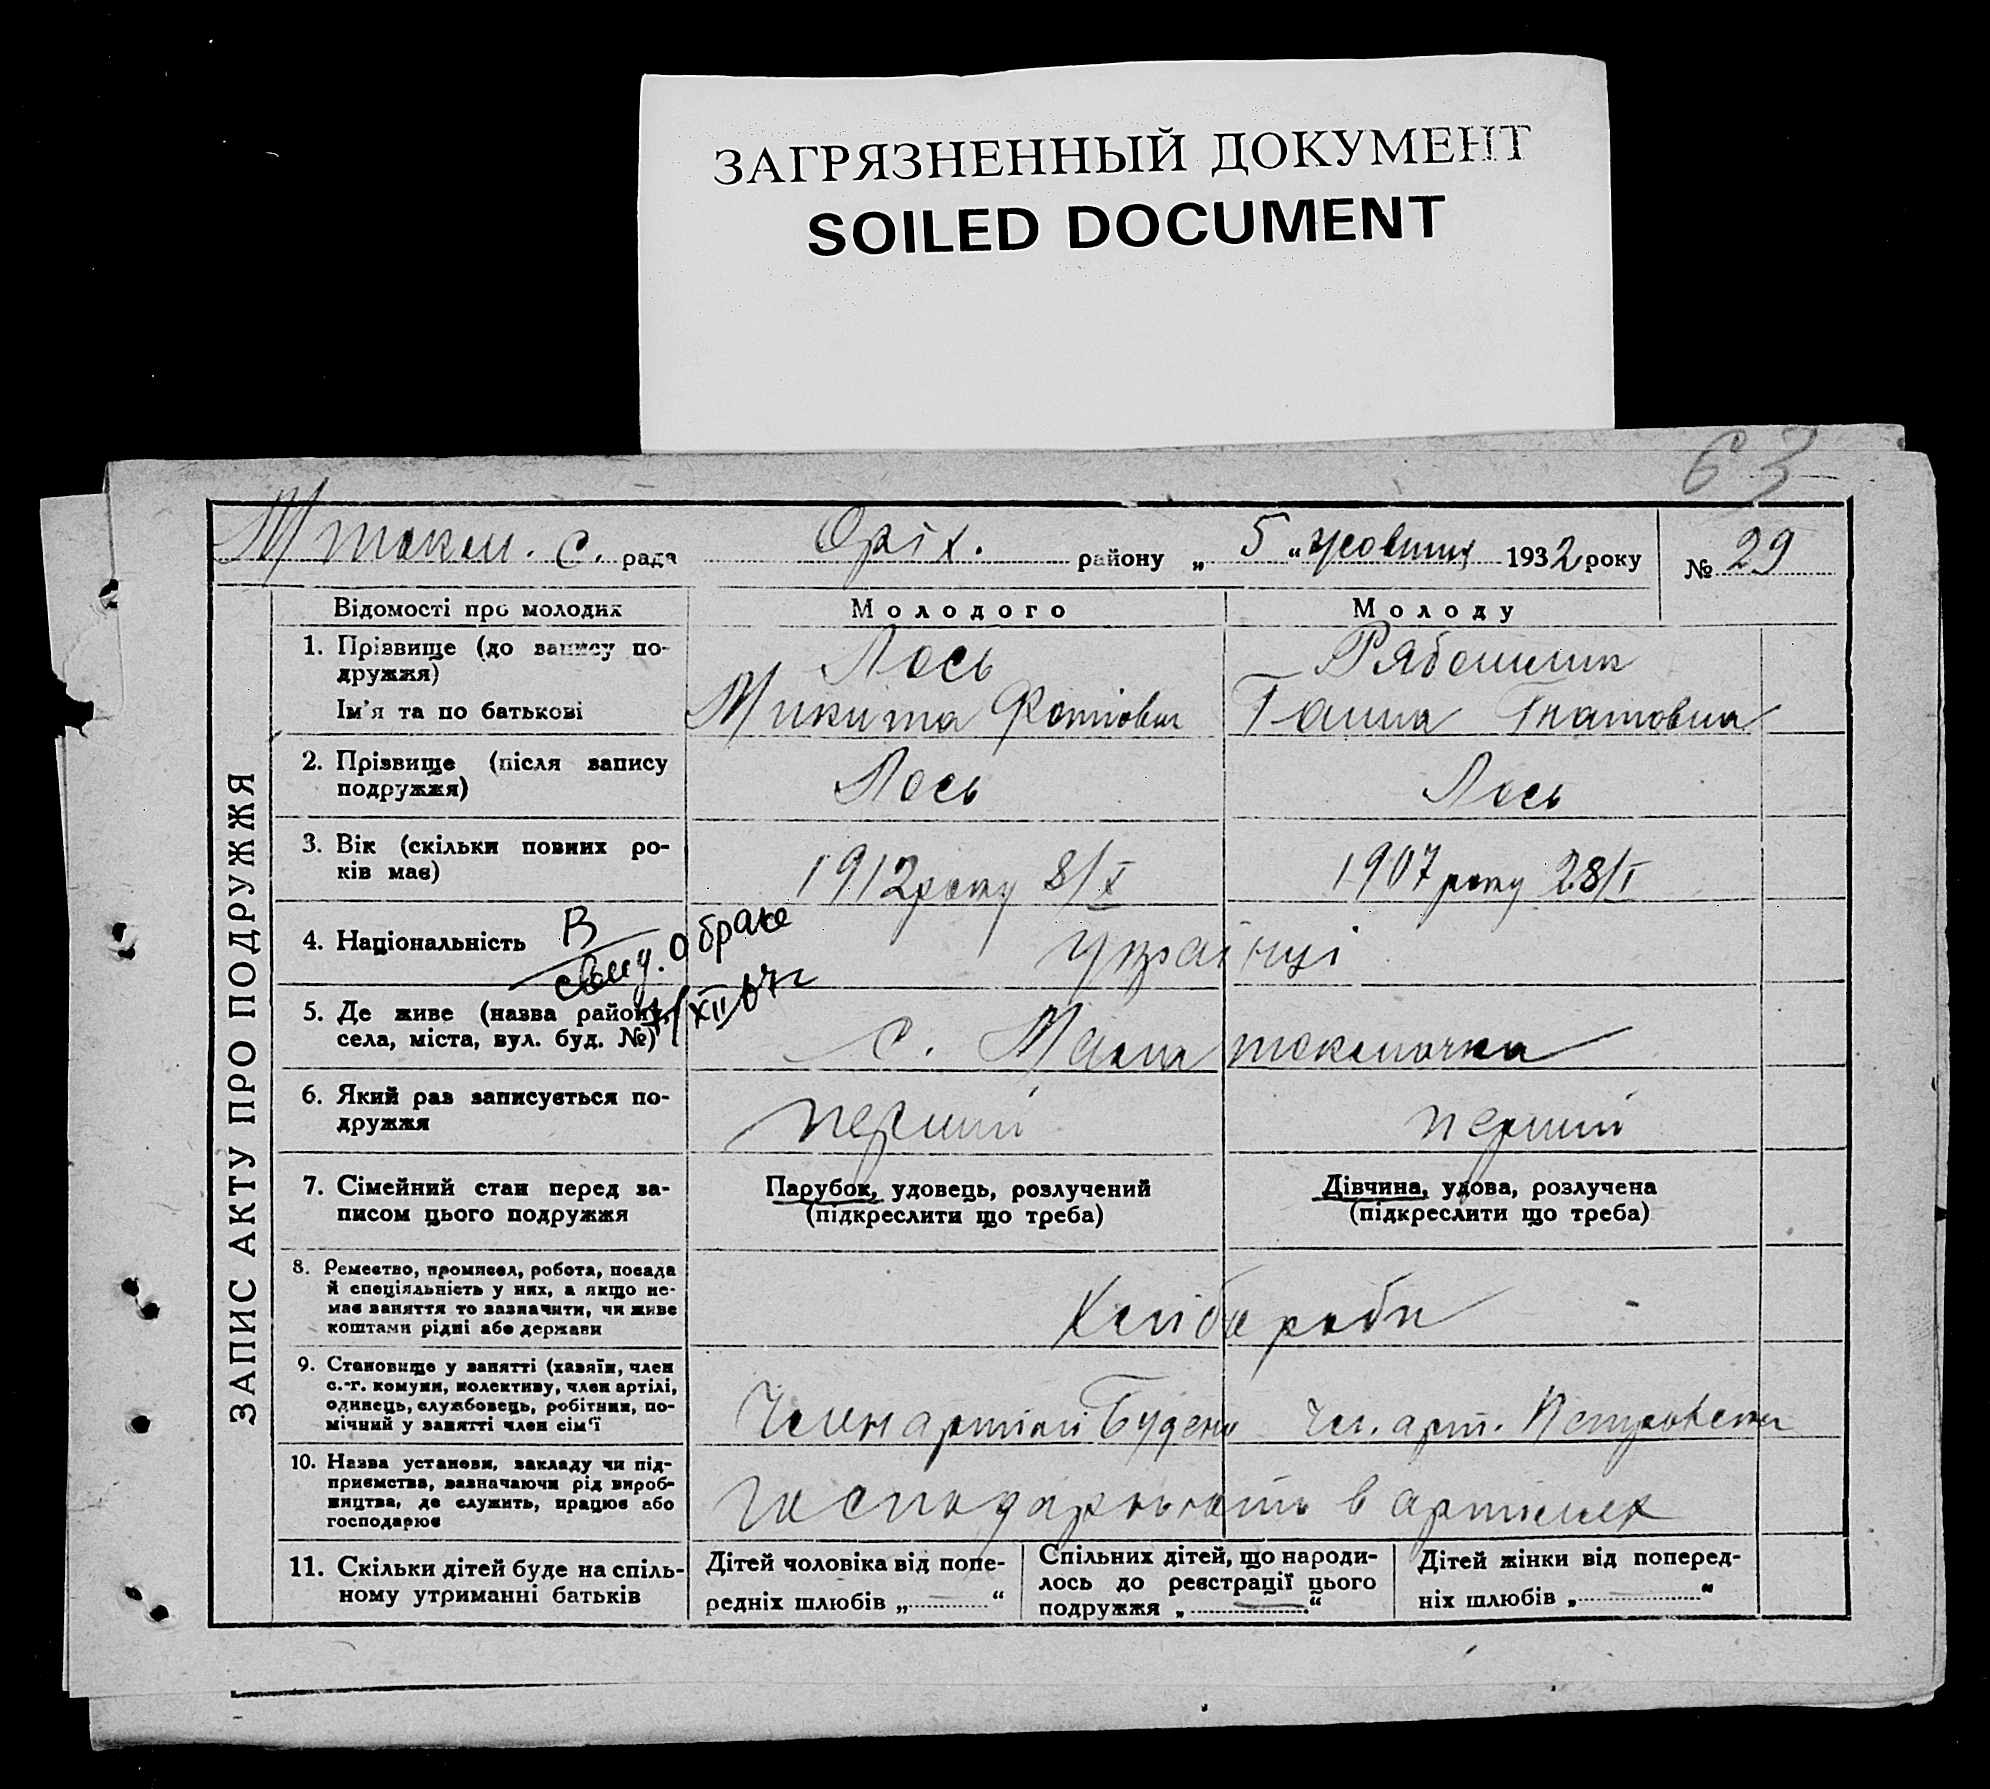 ЗАГРЯЗНЕННЫЙ ДОКУМЕНТ
SOILED DOCUMENT
63
Мтокм. с. рада Оріх. району „ 5 “ жовтня 1932 року № 29
ЗАПИС АКТУ ПРО ПОДРУЖЖЯ
Відомості про молодих Молодого Молоду
1. Прізвище (до запису по-
дружжя)
Лось Рябошапк
Ім'я та по батькові
Микита Фотіович Ганна Гнатовна
2. Прізвище (після запису
подружжя)
Лось Лось
3. Вік (скільки повних ро-
ків має)
1912 року 8/X 1907 року 28/I
4. Національність
українці
В
свид. о браке
XII 67г
5. Де живе (назва району,
села, міста, вул. буд. №)
с. Мала токмачка
6. Який раз записується по-
дружжя
перший перший
7. Сімейний стан перед за-
писом цього подружжя
Парубок, удовець, розлучений
(підкреслити що треба)
Дівчина, удова, розлучена
(підкреслити що треба)
8. Ремество, промисел, робота, посада
й спеціяльність у них, а якщо не-
має заняття то зазначити, чи живе
коштами рідні або держави
Хлібороби
9. Становище у занятті (хазяїн, член
с.-г. комуни, колективу, член артілі,
одинець, службовець, робітник, по-
мічний у занятті член сім'ї
Член артілі Будено чл. арт. Петровськ
10. Назва установи, закладу чи під-
приємства, зазначаючи рід вироб-
ництва, де служить, працює або
господарює
в артілях
11. Скільки дітей буде на спіль-
ному утриманні батьків
Дітей чоловіка від попе-
редніх шлюбів „ — “
Спільних дітей, що народи-
лось до реєстрації цього
подружжя „ — “
Дітей жінки від поперед-
ніх шлюбів „ — “